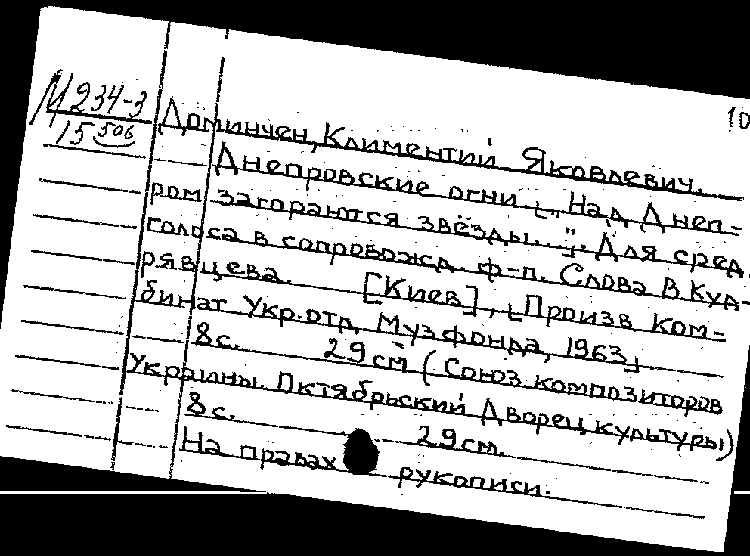 М234-3
15506
10
Доминчен, Климентий Яковлевич.
Днепровские огни [„Над Днеп-
ром загораются звёзды...“]. Для сред.
голоса в сопровожд. ф-п. Слова В. Куд-
рявцева. [Киев], [Произв. ком-
бинат Укр. отд. Музфонда, 1963]
8с. 29см (Союз композиторов
Украины. Октябрьский Дворец культуры)
8с. 29см.
На правах рукописи.